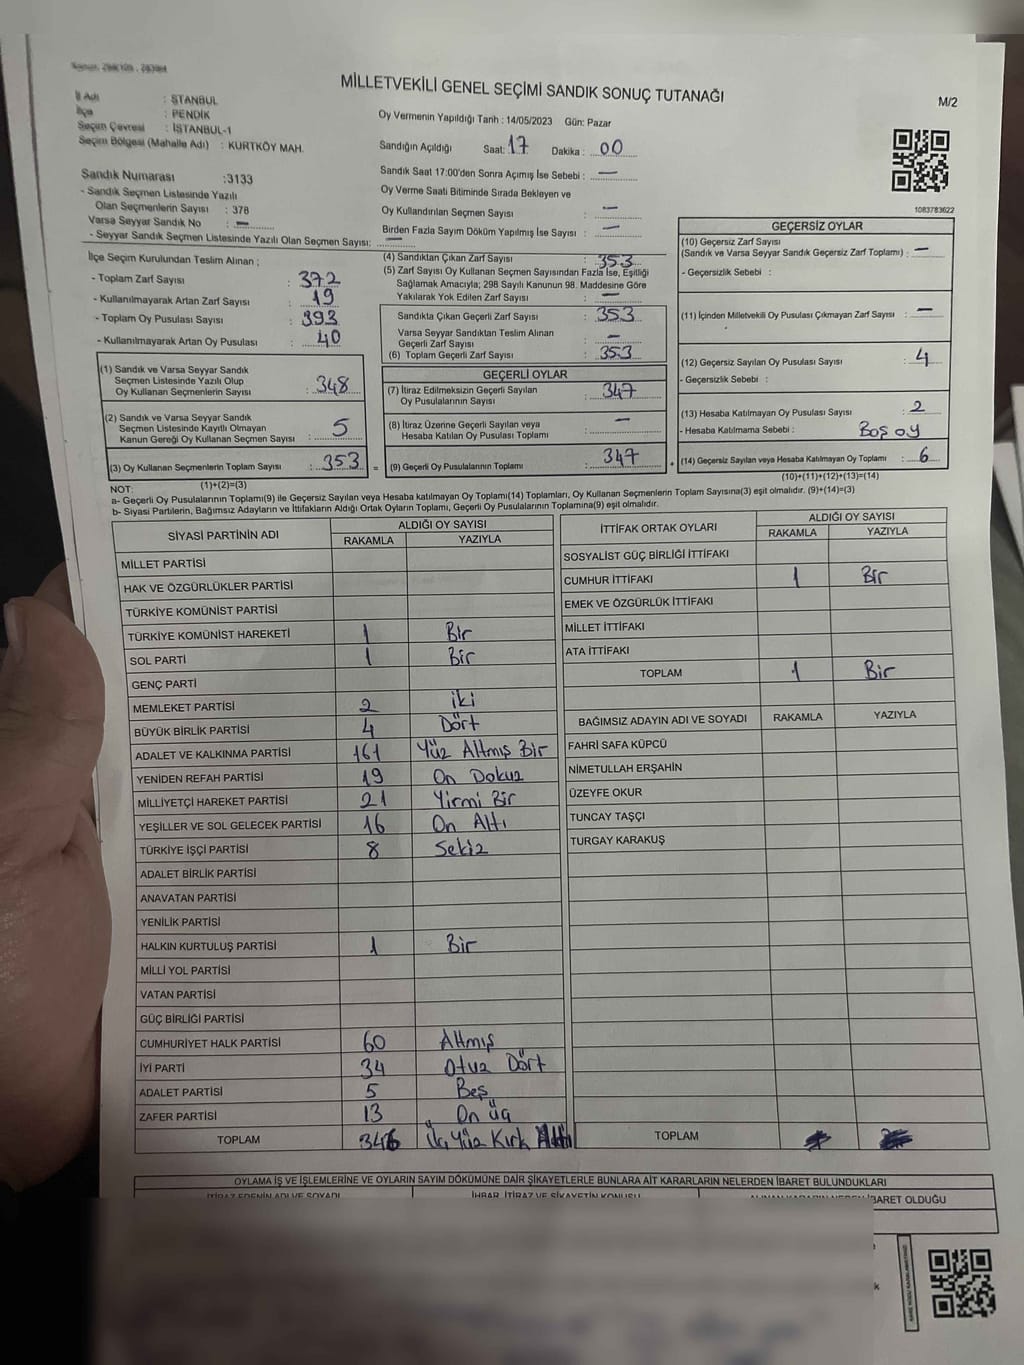 MİLLETVEKİLİ GENEL SEÇİMİ SANDIK SONUÇ TUTANAĞI
M/2
İl Adı : STANBUL
İlçe : PENDİK
Seçim Çevresi : İSTANBUL-1
Seçim Bölgesi (Mahalle Adı) : KURTKÖY MAH.
Sandık Numarası :3133
- Sandık Seçmen Listesinde Yazılı
Olan Seçmenlerin Sayısı : 378
Varsa Seyyar Sandık No : —
- Seyyar Sandık Seçmen Listesinde Yazılı Olan Seçmen Sayısı: —
Oy Vermenin Yapıldığı Tarih : 14/05/2023 Gün: Pazar
Sandığın Açıldığı Saat: 17 Dakika : 00
Sandık Saat 17:00'den Sonra Açımış İse Sebebi : —
Oy Verme Saati Bitiminde Sırada Bekleyen ve
Oy Kullandırılan Seçmen Sayısı : —
Birden Fazla Sayım Döküm Yapılmış İse Sayısı : —
1083783622
İlçe Seçim Kurulundan Teslim Alınan ;
- Toplam Zarf Sayısı : 372
- Kullanılmayarak Artan Zarf Sayısı : 19
- Toplam Oy Pusulası Sayısı : 393
- Kullanılmayarak Artan Oy Pusulası : 40
(1) Sandık ve Varsa Seyyar Sandık
Seçmen Listesinde Yazılı Olup
Oy Kullanan Seçmenlerin Sayısı : 348
(2) Sandık ve Varsa Seyyar Sandık
Seçmen Listesinde Kayıtlı Olmayan
Kanun Gereği Oy Kullanan Seçmen Sayısı : 5
(3) Oy Kullanan Seçmenlerin Toplam Sayısı : 353
(1)+(2)=(3)
(4) Sandıktan Çıkan Zarf Sayısı : 353
(5) Zarf Sayısı Oy Kullanan Seçmen Sayısından Fazla İse, Eşitliği
Sağlamak Amacıyla; 298 Sayılı Kanunun 98. Maddesine Göre
Yakılarak Yok Edilen Zarf Sayısı : —
Sandıkta Çıkan Geçerli Zarf Sayısı : 353
Varsa Seyyar Sandıktan Teslim Alınan
Geçerli Zarf Sayısı : —
(6) Toplam Geçerli Zarf Sayısı : 353
GEÇERLİ OYLAR
(7) İtiraz Edilmeksizin Geçerli Sayılan
Oy Pusulalarının Sayısı : 347
(8) İtiraz Üzerine Geçerli Sayılan veya
Hesaba Katılan Oy Pusulası Toplamı : —
= (9) Geçerli Oy Pusulalarının Toplamı : 347
GEÇERSİZ OYLAR
(10) Geçersiz Zarf Sayısı
(Sandık ve Varsa Seyyar Sandık Geçersiz Zarf Toplamı) : —
- Geçersizlik Sebebi :
(11) İçinden Milletvekili Oy Pusulası Çıkmayan Zarf Sayısı : —
(12) Geçersiz Sayılan Oy Pusulası Sayısı : 4
- Geçersizlik Sebebi :
(13) Hesaba Katılmayan Oy Pusulası Sayısı : 2
- Hesaba Katılmama Sebebi : Boş oy
+ (14) Geçersiz Sayılan veya Hesaba Katılmayan Oy Toplamı : 6
(10)+(11)+(12)+(13)=(14)
NOT:
a- Geçerli Oy Pusulalarının Toplamı(9) ile Geçersiz Sayılan veya Hesaba katılmayan Oy Toplamı(14) Toplamları, Oy Kullanan Seçmenlerin Toplam Sayısına(3) eşit olmalıdır. (9)+(14)=(3)
b- Siyasi Partilerin, Bağımsız Adayların ve İttifakların Aldığı Ortak Oyların Toplamı, Geçerli Oy Pusulalarının Toplamına(9) eşit olmalıdır.
SİYASİ PARTİNİN ADI ALDIĞI OY SAYISI
RAKAMLA YAZIYLA
MİLLET PARTİSİ
HAK VE ÖZGÜRLÜKLER PARTİSİ
TÜRKİYE KOMÜNİST PARTİSİ
TÜRKİYE KOMÜNİST HAREKETİ 1 Bir
SOL PARTİ 1 Bir
GENÇ PARTİ
MEMLEKET PARTİSİ 2 iki
BÜYÜK BİRLİK PARTİSİ 4 Dört
ADALET VE KALKINMA PARTİSİ 161 Yüz Altmış Bir
YENİDEN REFAH PARTİSİ 19 On Dokuz
MİLLİYETÇİ HAREKET PARTİSİ 21 Yirmi Bir
YEŞİLLER VE SOL GELECEK PARTİSİ 16 On Altı
TÜRKİYE İŞÇİ PARTİSİ 8 Sekiz
ADALET BİRLİK PARTİSİ
ANAVATAN PARTİSİ
YENİLİK PARTİSİ
HALKIN KURTULUŞ PARTİSİ 1 Bir
MİLLİ YOL PARTİSİ
VATAN PARTİSİ
GÜÇ BİRLİĞİ PARTİSİ
CUMHURİYET HALK PARTİSİ 60 Altmış
İYİ PARTİ 34 Otuz Dört
ADALET PARTİSİ 5 Beş
ZAFER PARTİSİ 13 On üç
TOPLAM 346 Üç Yüz Kırk Altı
İTTİFAK ORTAK OYLARI ALDIĞI OY SAYISI
RAKAMLA YAZIYLA
SOSYALİST GÜÇ BİRLİĞİ İTTİFAKI
CUMHUR İTTİFAKI 1 Bir
EMEK VE ÖZGÜRLÜK İTTİFAKI
MİLLET İTTİFAKI
ATA İTTİFAKI
TOPLAM 1 Bir
BAĞIMSIZ ADAYIN ADI VE SOYADI RAKAMLA YAZIYLA
FAHRİ SAFA KÜPCÜ
NİMETULLAH ERŞAHİN
ÜZEYFE OKUR
TUNCAY TAŞÇI
TURGAY KARAKUŞ
TOPLAM
OYLAMA İŞ VE İŞLEMLERİNE VE OYLARIN SAYIM DÖKÜMÜNE DAİR ŞİKAYETLERLE BUNLARA AİT KARARLARIN NELERDEN İBARET BULUNDUKLARI
İTİRAZ EDENİN ADI VE SOYADI İHBAR, İTİRAZ VE ŞİKAYETİN KONUSU İBARET OLDUĞU